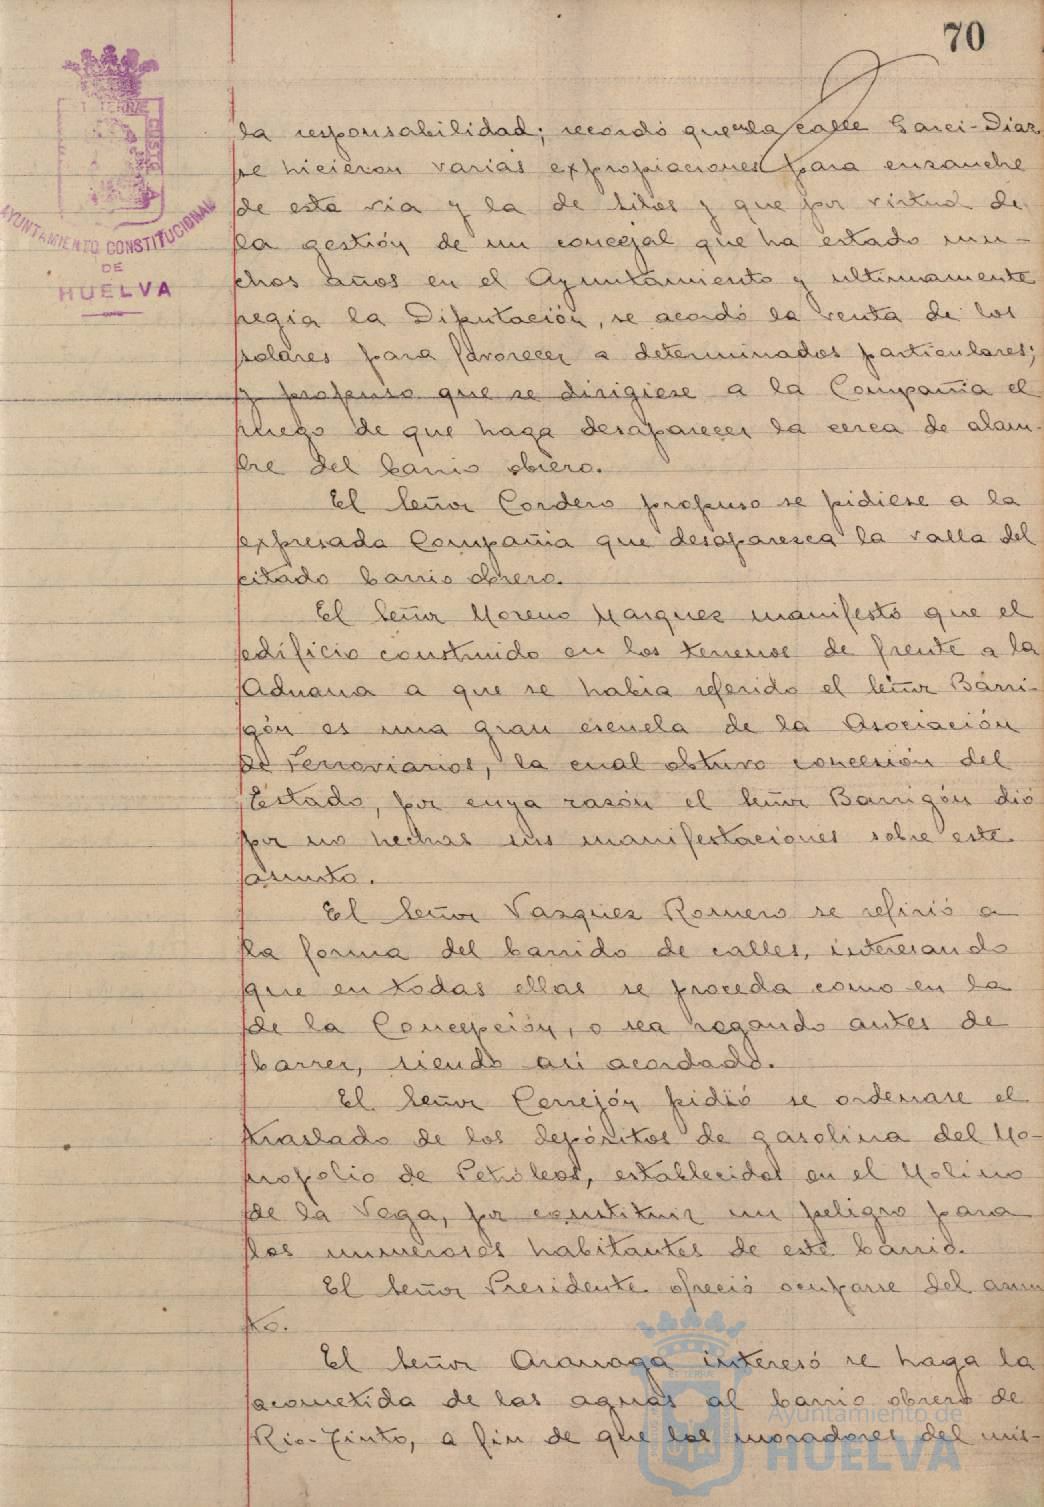 70
TERRÆ
AYUNTAMIENTO CONSTITUCIONAL
DE
HUELVA
la responsabilidad; recordó que en la calle Garci-Diaz
se hicieron varias expropiaciones para ensanche
de esta via y la de Silos y que por virtud de
la gestión de un concejal que ha estado mu-
chos años en el Ayuntamiento y ultimamente
regia la Diputación, se acordó la venta de los
solares para favorecer a determinados particulares;
y propuso que se dirigiese a la Compañia el
ruego de que haga desaparecer la cerca de alam-
bre del barrio obrero.
El Señor Cordero propuso se pidiese a la
expresada Compañia que desaparezca la valla del
citado barrio obrero.
El Señor Moreno Marquez manifestó que el
edificio construido en los terrenos de frente a la
Aduana a que se habia referido el Señor Barri-
gón es una gran escuela de la Asociación
de Ferroviarios, la cual obtuvo concesión del
Estado, por cuya razón el Señor Barrigón dió
por no hechas sus manifestaciones sobre este
asunto.
El Señor Vazquez Romero se refirió a
la forma del barrido de calles, interesando
que en todas ellas se proceda como en la
de la Concepción, o sea regando antes de
barrer, siendo asi acordado.
El Señor Cerrejón pidió se ordenase el
traslado de los depósitos de gasolina del Mo-
nopolio de Petróleos, establecidos en el Molino
de la Vega, por constituir un peligro para
los numerosos habitantes de este barrio.
El Señor Presidente ofreció ocuparse del asun-
to.
El Señor Aranaga interesó se haga la
acometida de las aguas al barrio obrero de
Rio-Tinto, a fin de que los moradores del mis-
Ayuntamiento de
HUELVA